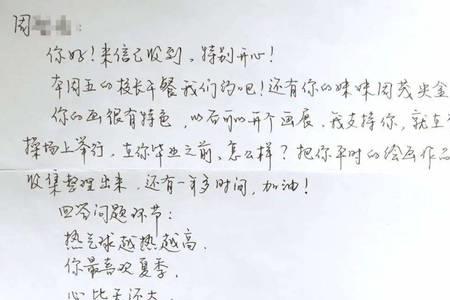 周
你好！来信已收到，特别开心！
本周五的校长午餐我们约吧！还有你的妹妹周茂
你的画很有特色，以后可以开个画展，我支持你，就在
操场上举行，在你毕业之前，怎么样？把你平时的绘画作品
收集整理出来，还有一年多时间，加油！
回答问题环节：
热气球越热越高.
你最喜欢夏季.
心比天还大